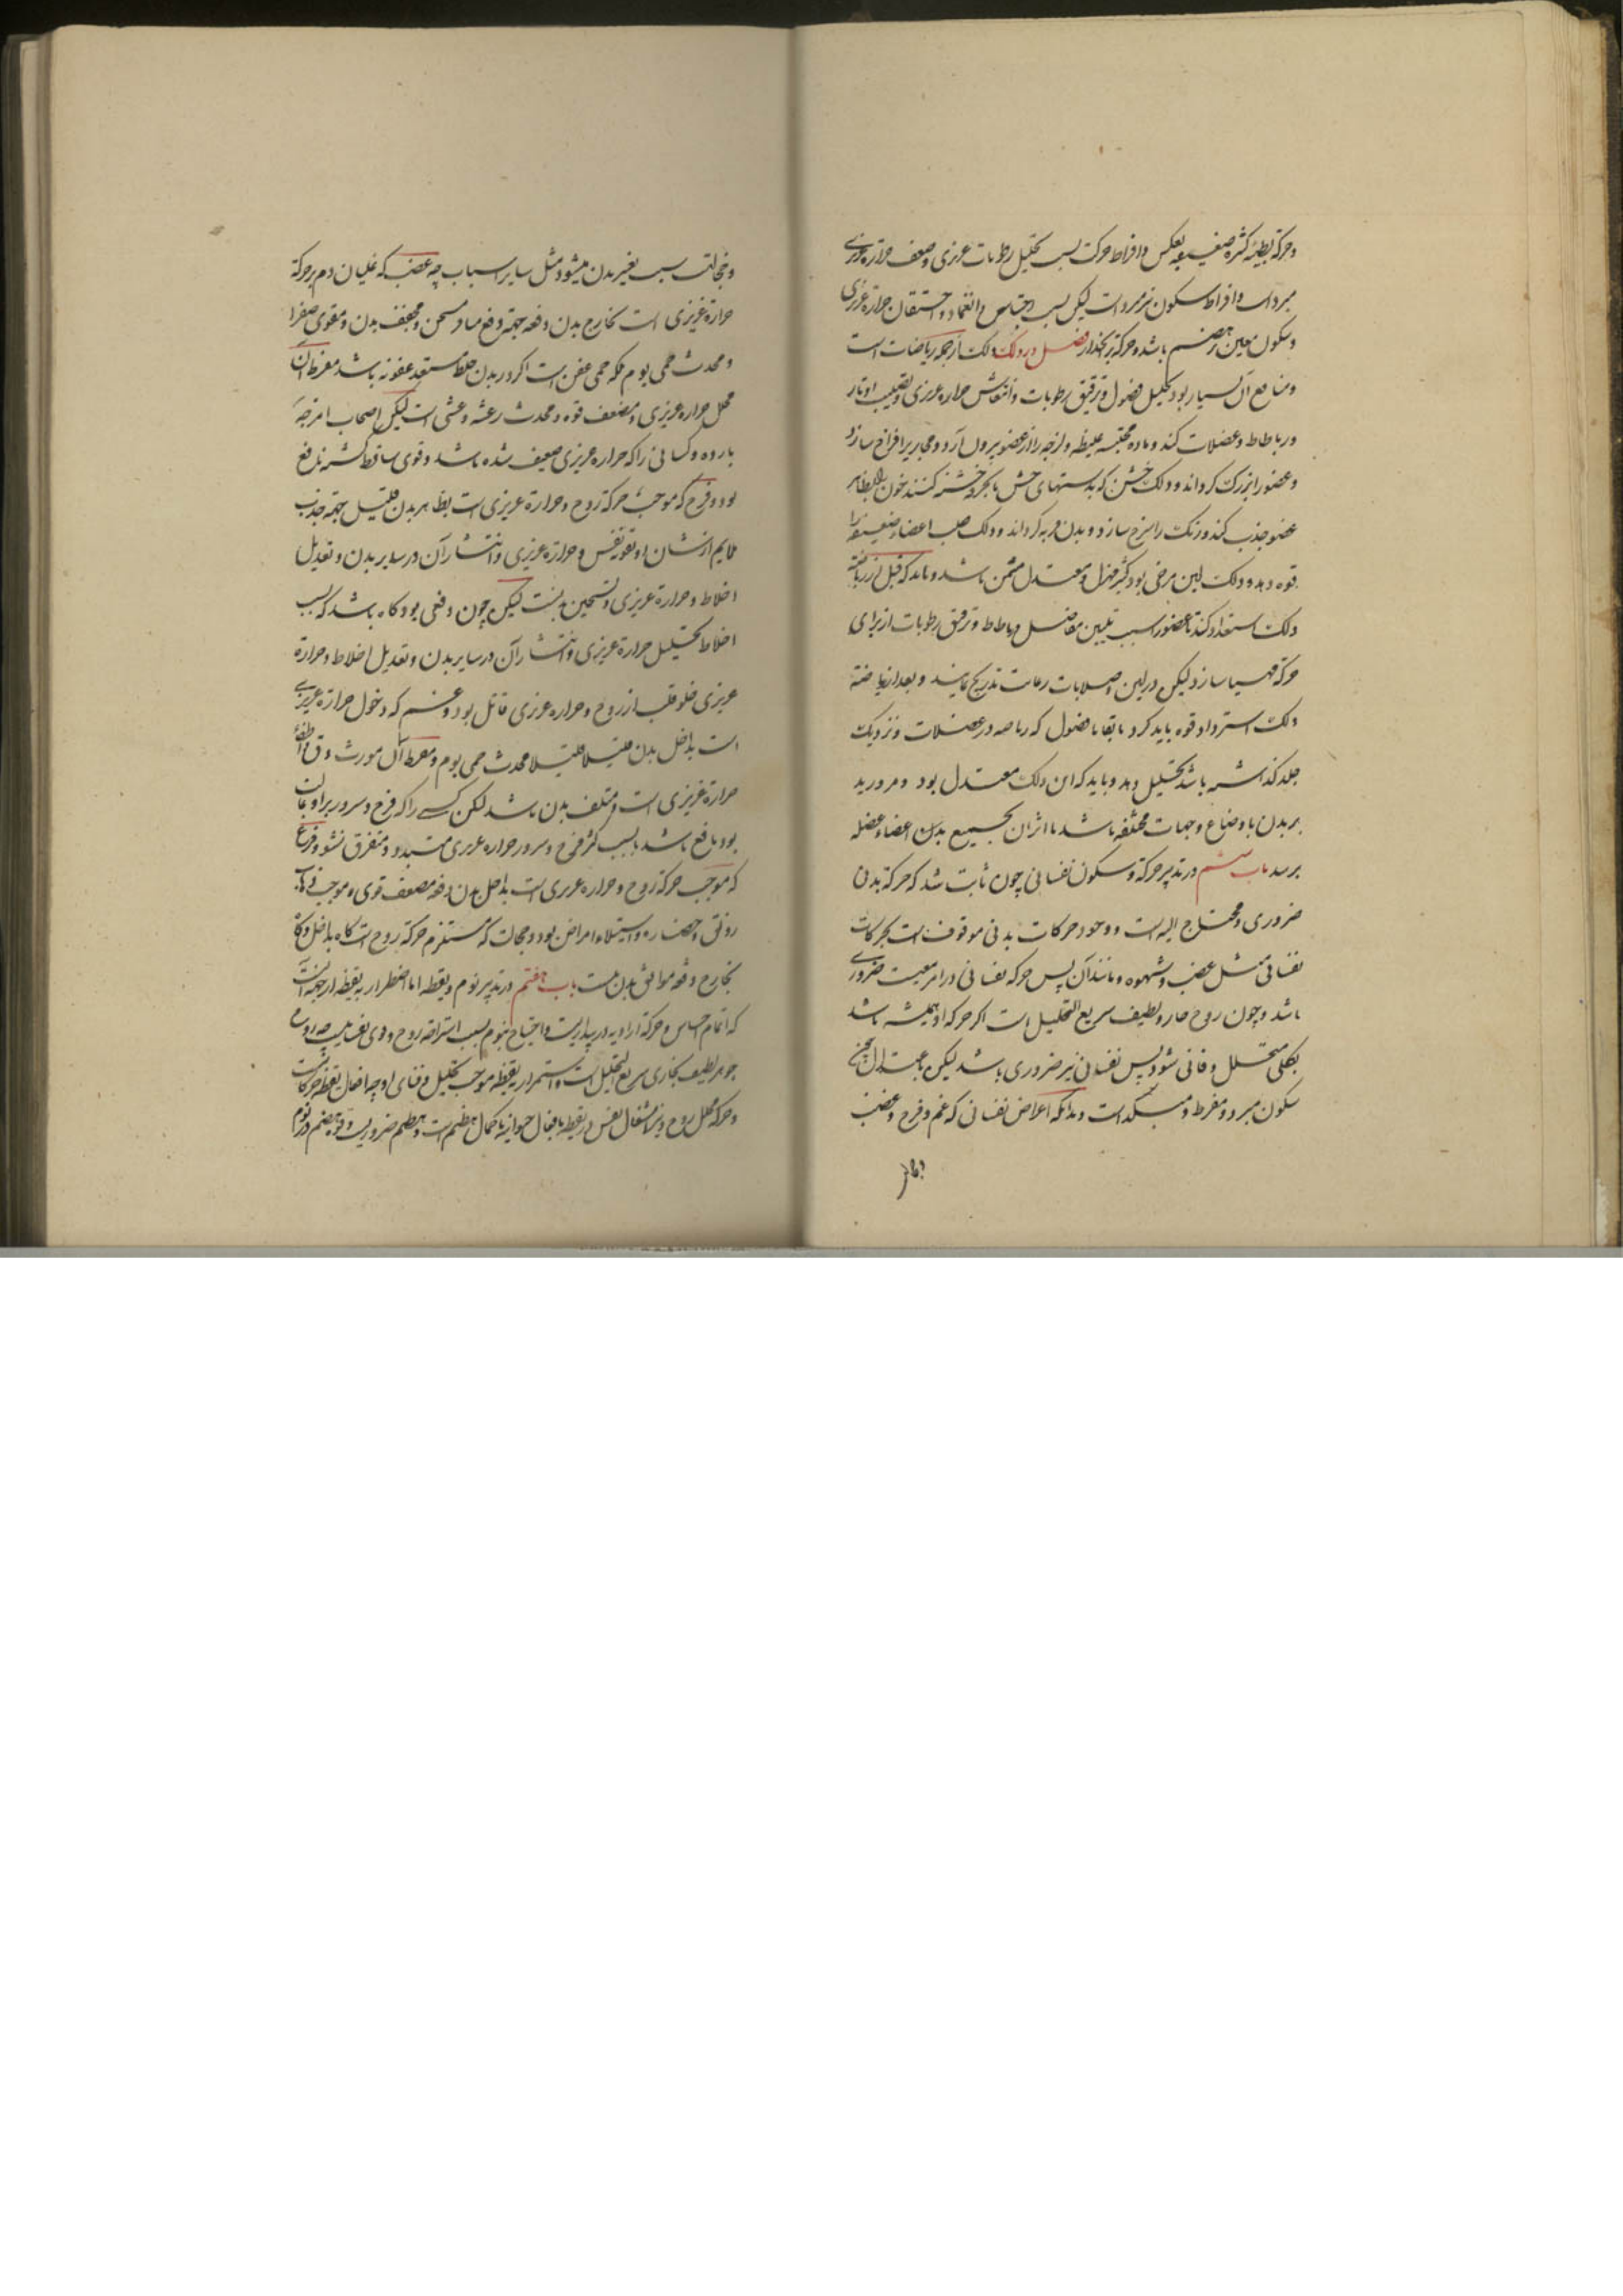 و حرکة بطیئه کثره ضعیفه بعکس و افراط حرکت بسبب تحلیل رطوبات غریزی و ضعف حرارة غریزی
مبرد است و افراط سکون نیز مبرد است لیکن بسبب احتباس و انغماد و احتقان حرارة غریزی
و سکون معین بر هضم باشد و حرکة بر انحدار فصل در دلک دلک از جمله ریاضات است
و منافع آن بسیار بود تحلیل فضول و ترقیق رطوبات و انتعاش حراره غریزی و تصلیب اوتار
و رباطات و عضلات کند و ماده محتبسه غلیظه و لزجه را از عضو بیرون آرد و مجاری را فراخ سازد
و عضو را بزرک کرداند و دلک خشن که بدستهای خشن یا بخرقه خشنه کنند خون را بظاهر
عضو جذب کند و رنک را سرخ سازد و بدن فربه کرداند و دلک صلب اعضاء ضعیفه را
قوه دهد و دلک لین مرخی بود کثیر مهزل و معتدل مسمن باشد و باید که قبل از ریاضة
دلک استعداد کند تا عضو را بسبب تلیین مفاصل و رباطات و ترقیق رطوبات از برای
حرکة مهیا سازد لیکن در لین و صلابات رعایت تدریج نمایند و بعد از ریاضة
دلک استرداد قوه باید کرد تا بقایا فضول که ریاضه در عضلات و نزدیک
جلد کذاشته باشد تحلیل دهد و باید که این دلک معتدل بود و مرور ید
بر بدن باوضاع وجهات مختلفه باشد تا اثر آن بجمیع بدن اعضاء عضله
برسد باب ششم در تدبیر حرکة و سکون نفسانی چون ثابت شد که حرکة بدنی
ضروری و محتاج الیه است و وجود حرکات بدنی موقوف است بحرکات
نفسانی مثل غضب و شهوه و مانند آن پس حرکه نفسانی در امر معیشت ضروری
باشد و چون روح حار و لطیف سریع التحلیل است اکر حرکه او همیشه باشد
بکلی متحلل و فانی شود پس نفسانی نیز ضروری باشد لیکن باعتدال چه
سکون مبرد و مفرط و مبلد است و بدانکه اعراض نفسانی که غم و فرح و غضب
و خجالت سبب تغییر بدن میشود مثل سایر اسباب چه غضب که غلیان دم و حرکة
حرارة غریزی است بخارج بدن دفعه جهة دفع منافر مسخن و مجفف بدن و مقوی صفرا
و محدث حمی یوم بلکه حمی عفن است اکر در بدن خلط مستعد عفونة باشد مفرط آن
محلل حراره غریزی و مضعف قوه و محدث رعشه و غشی است لیکن اصحاب امزجه
بارده و کسانی را که حراره غریزی ضعیف شده باشد و قوی ساقط کشته نافع
بود و فرح که موجب حرکة روح و حرارة غریزی است بظاهر بدن قلیل جهة جذب
ملایم از شان او تقویة نفس و حرارة غریزی و انتشار آن در سایر بدن و تعدیل
اخلاط و حرارة غریزی و تسخین بدنست لیکن چون دفعی بود کاه باشد که بسبب
اخلاط تحلیل حرارة غریزی و انتشار آن در سایر بدن و تعدیل اخلاط و حرارة
غریزی خلو قلب از روح و حراره غریزی قاتل بود و غم که دخول حرارة غریزی
است بداخل بدن قلیلا قلیلا محدث حمی یوم و مفرط آن مورث دق و اطفاء
حرارة غریزی است و متلف بدن باشد لکن کسی را که فرح و سرور بر او غالب
بود نافع باشد بسبب کثر فرح و سرور حراره غریزی متبدد و متفرق نشود و فزع
که موجب حرکة روح و حراره غریزی است بداخل بدن دفعه مضعف قوی و موجب ذهاب
رونق و نضاره و استیلاء امراض بود و خجالت که مستلزم حرکة روح است کاه بداخل و کاه
بخارج دفعه موافق بدن نیست باب هفتم در تدبیر نوم و یقظه اما اضطرار بیقظه از جهة آنست
که اتمام حس و حرکة ارادیه در بیداریست و احتیاج بنوم بسبب استراحة روح و قوی نفسانیه چه روح
جوهر لطیف بخاری سریع التحلیل است و استمرار یقظه موجب تحلیل و فنای او چه افعال یقظه حرکاتست
و حرکه محلل روح و نیز اشتغال نفس در یقظه بافعال حیوانیه با کمال هضم است و هضم ضروریست و قوة هضم در نوم